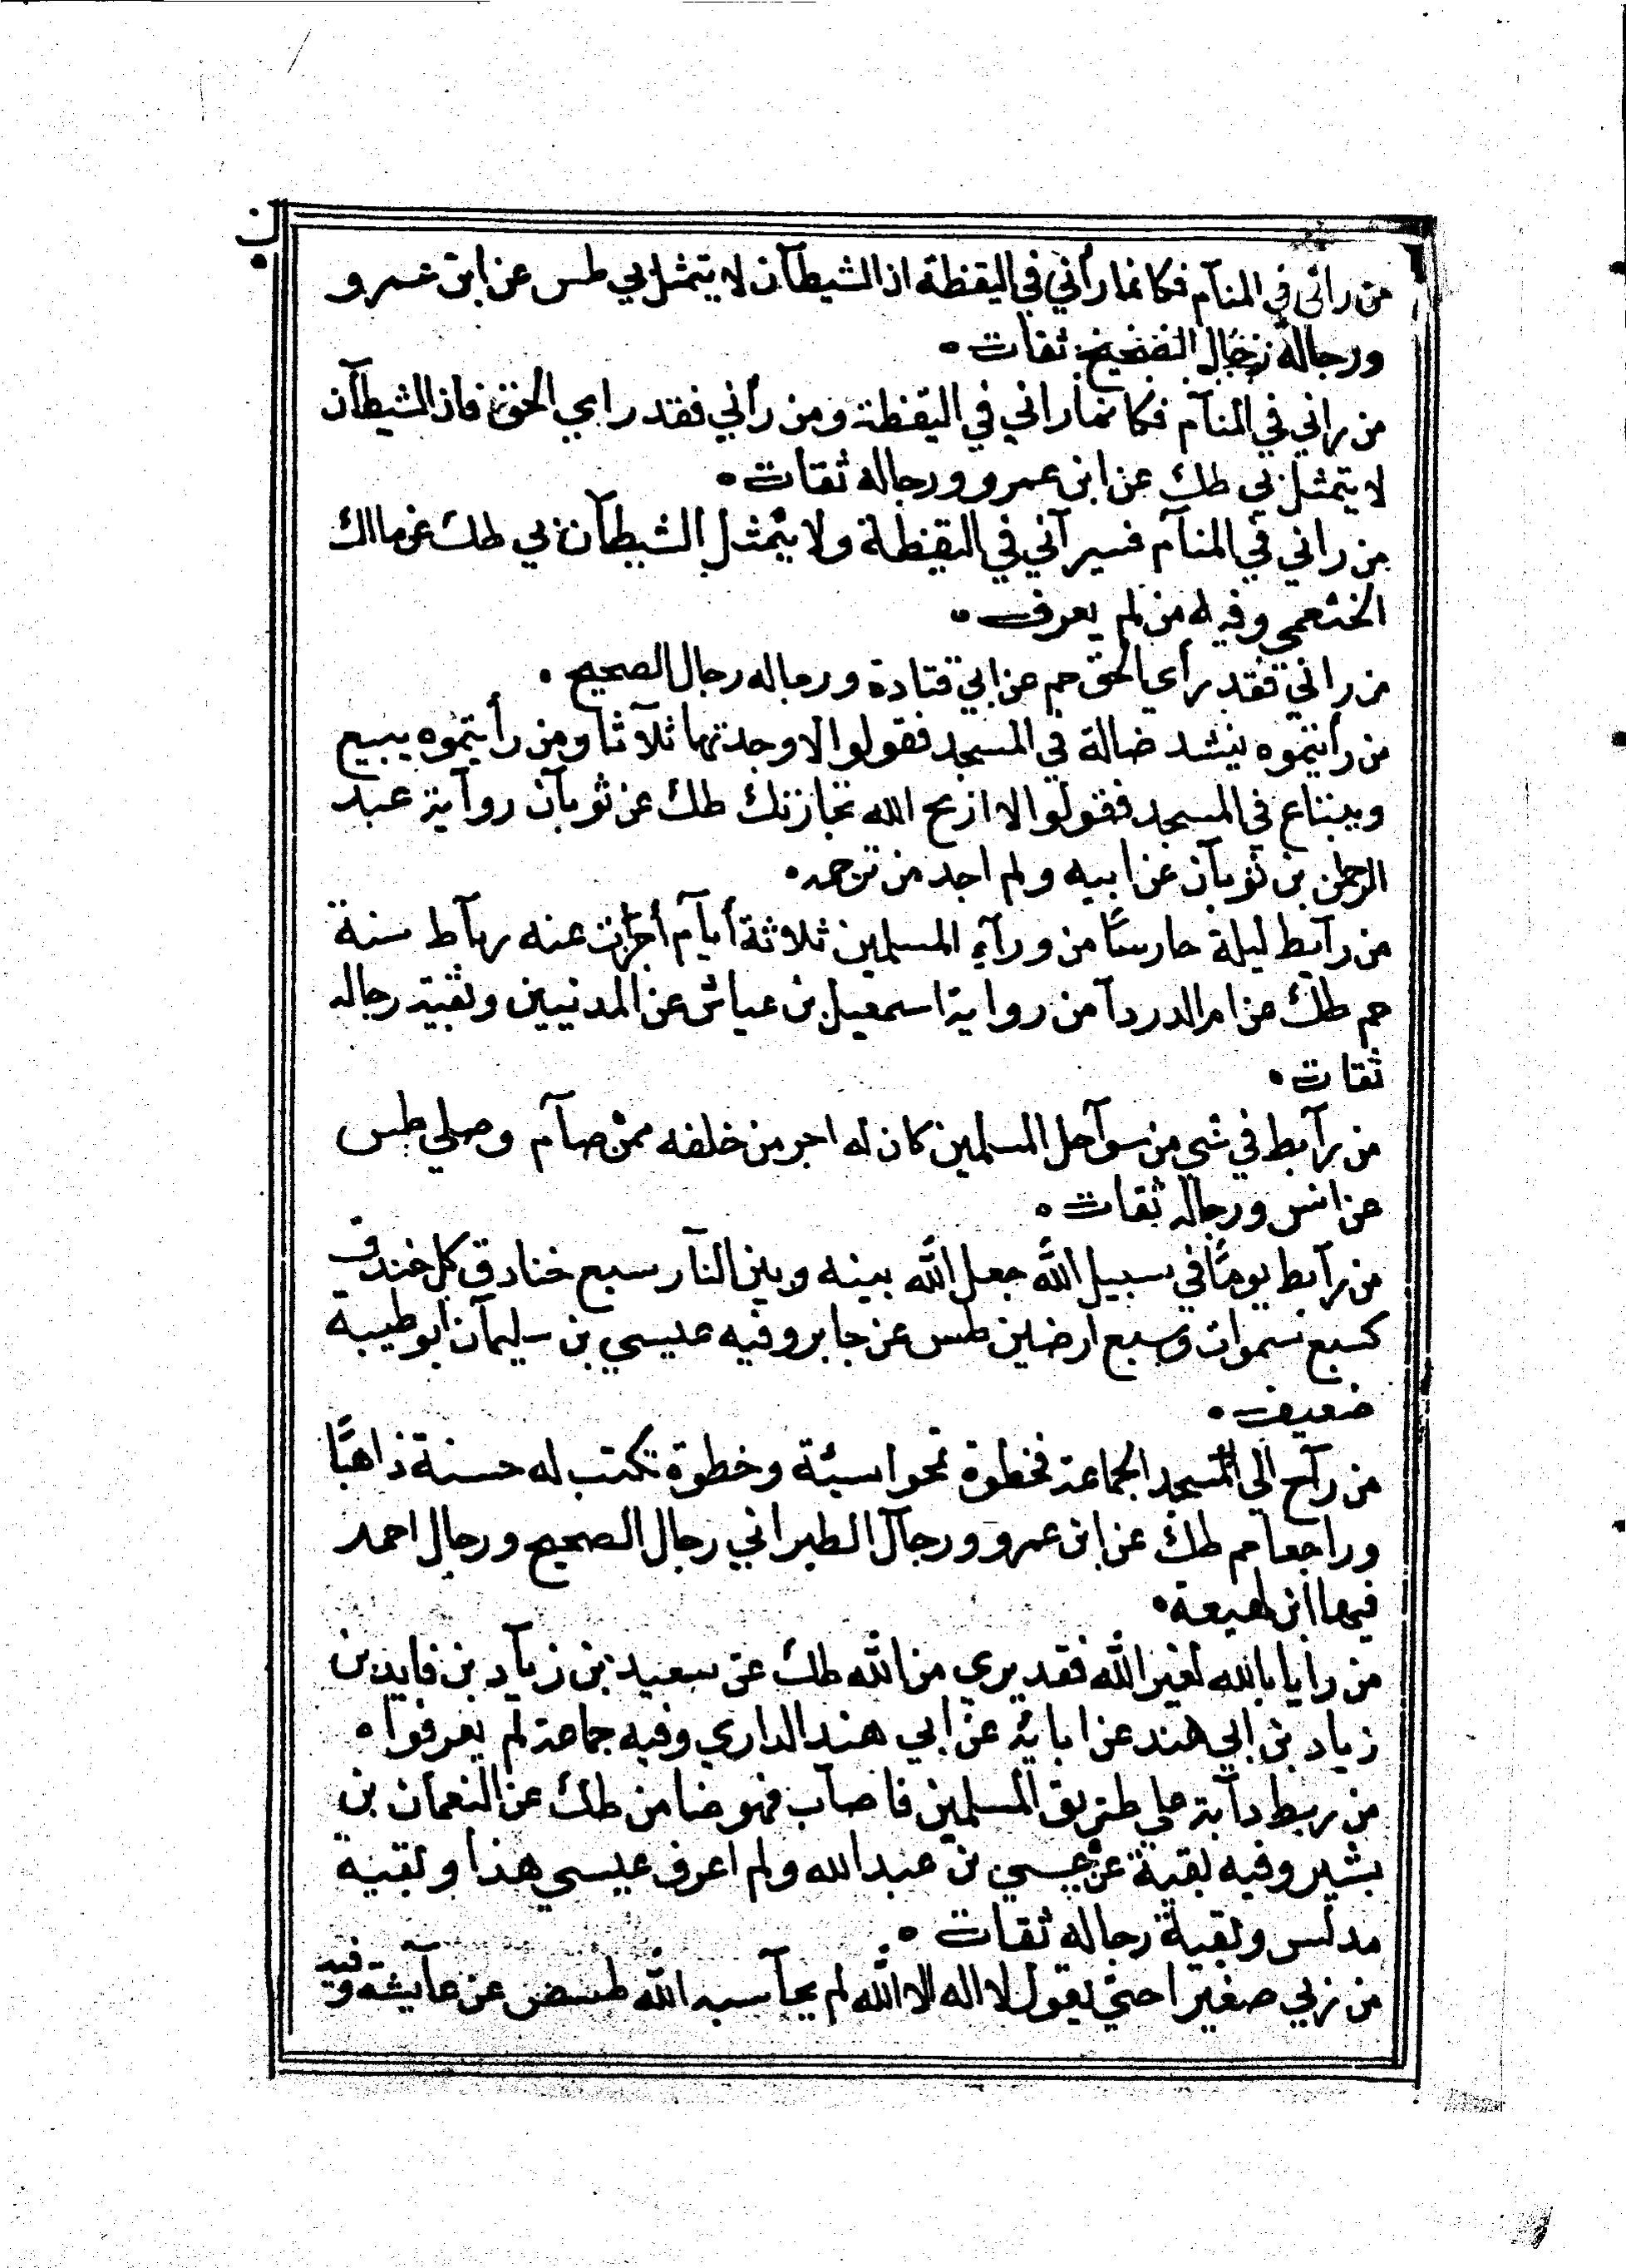 ب
من رانى في المنآم فكانما رأني في اليقظة ان الشيطآن لا يتمثل بي طس عن ابن عمرو
ورجاله رجال الصحيح ثقات ٠
من راني في المنآم فكانما راني في اليقظة ومن رأني فقد راي الحق فان الشيطآن
لا يتمثل بي طك عن ابن عمرو ورجاله ثقات ٠
من راني في المنآم فسيرآني في اليقظة ولا يتمثل الشيطآن بي طك عن مالك
الخثعمي وفيه من لم يعرف ٠
من راني فقد رأي الحق حم عن ابي قتادة ورجاله رجال الصحيح ٠
من رأيتموه ينشد ضالة في المسجد فقولوا لا وجدتها ثلآثا ومن رأيتموه يبيع
ويبتاع في المسجد فقولوا لا اربح الله تجارتك طك عن ثوبآن روآية عبد
الرحمن بن ثوبآن عن ابيه ولم اجد من ترجمه ٠
من رآبط ليلة حارسًا من ورآء المسلمين ثلاثة أيآم أجزأت عنه ربآط سنة
حم طك عن ام الدردآ من رواية اسمعيل بن عياش عن المدنيين وبقية رجاله
ثقات ٠
من رآبط في شي من سوآحل المسلمين كان له اجر من خلفه ممن صآم وصلي طس
عن انس ورجاله ثقات ٠
من رآبط يومًا في سبيل الله جعل الله بينه وبين النآر سبع خنادق كل خندق
كسبع سموات وسبع ارضين طس عن جابر وفيه عيسي بن سليمآن ابو طيبة
ضعيف ٠
من رآح الي المسجد الجماعة فخطوة تمحوا سيئة وخطوة تكتب له حسنة ذاهبًا
وراجعا حم طك عن ابن عمرو ورجآل الطبراني رجال الصحيح ورجال احمد
فيها ابن لهيعة ٠
من رايا بالله لغير الله فقد بري من الله طك عن سعيد بن زيآد بن فايد بن
زياد بن ابي هند عن ابائه عن ابي هند الداري وفيه جماعة لم يعرفوا ٠
من ربط دآبة علي طريق المسلمين فاصآب فهو ضامن طك عن النعمآن بن
بشير وفيه بقية عن عيسي بن عبد الله ولم اعرف عيسي هذا وبقية
مدلس وبقية رجاله ثقات ٠
من ربي صغيرا حتي يقول لا اله الا الله لم يحآسبه الله طسض عن عآيشة وفيه